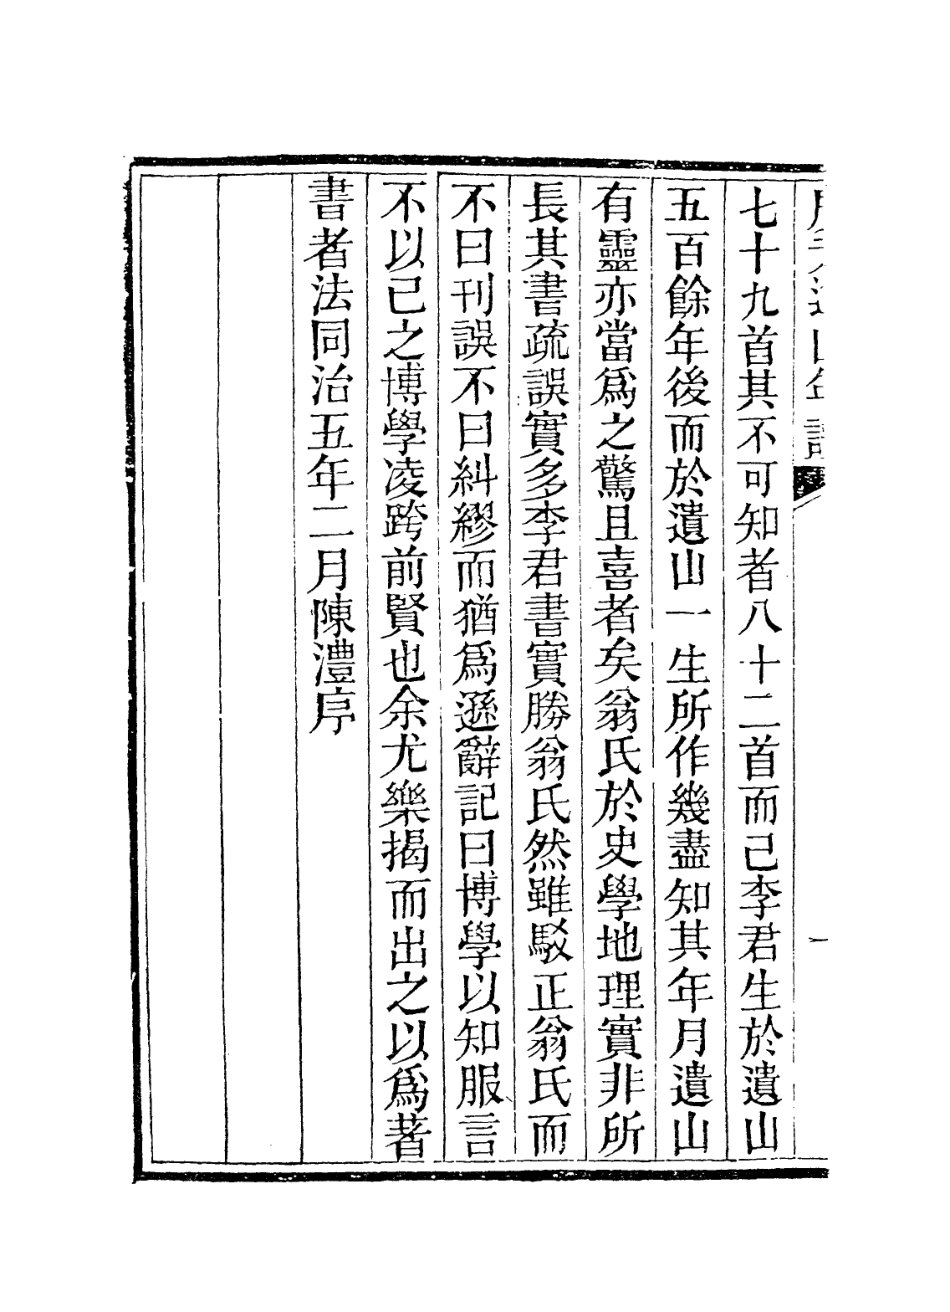 七十九首其不可知者八十二首而己李君生於遺山
五百餘年後而於遺山一生所作幾盡知其年月遺山
有靈亦當爲之驚且喜者矣翁氏於史學地理實非所
長其書疏誤實多李君書實勝翁氏然雖駁正翁氏而
不曰刊誤不曰糾繆而猶爲遜辭記曰博學以知服言
不以己之博學凌跨前賢也余尤樂揭而出之以爲著
書者法同治五年二月陳澧序